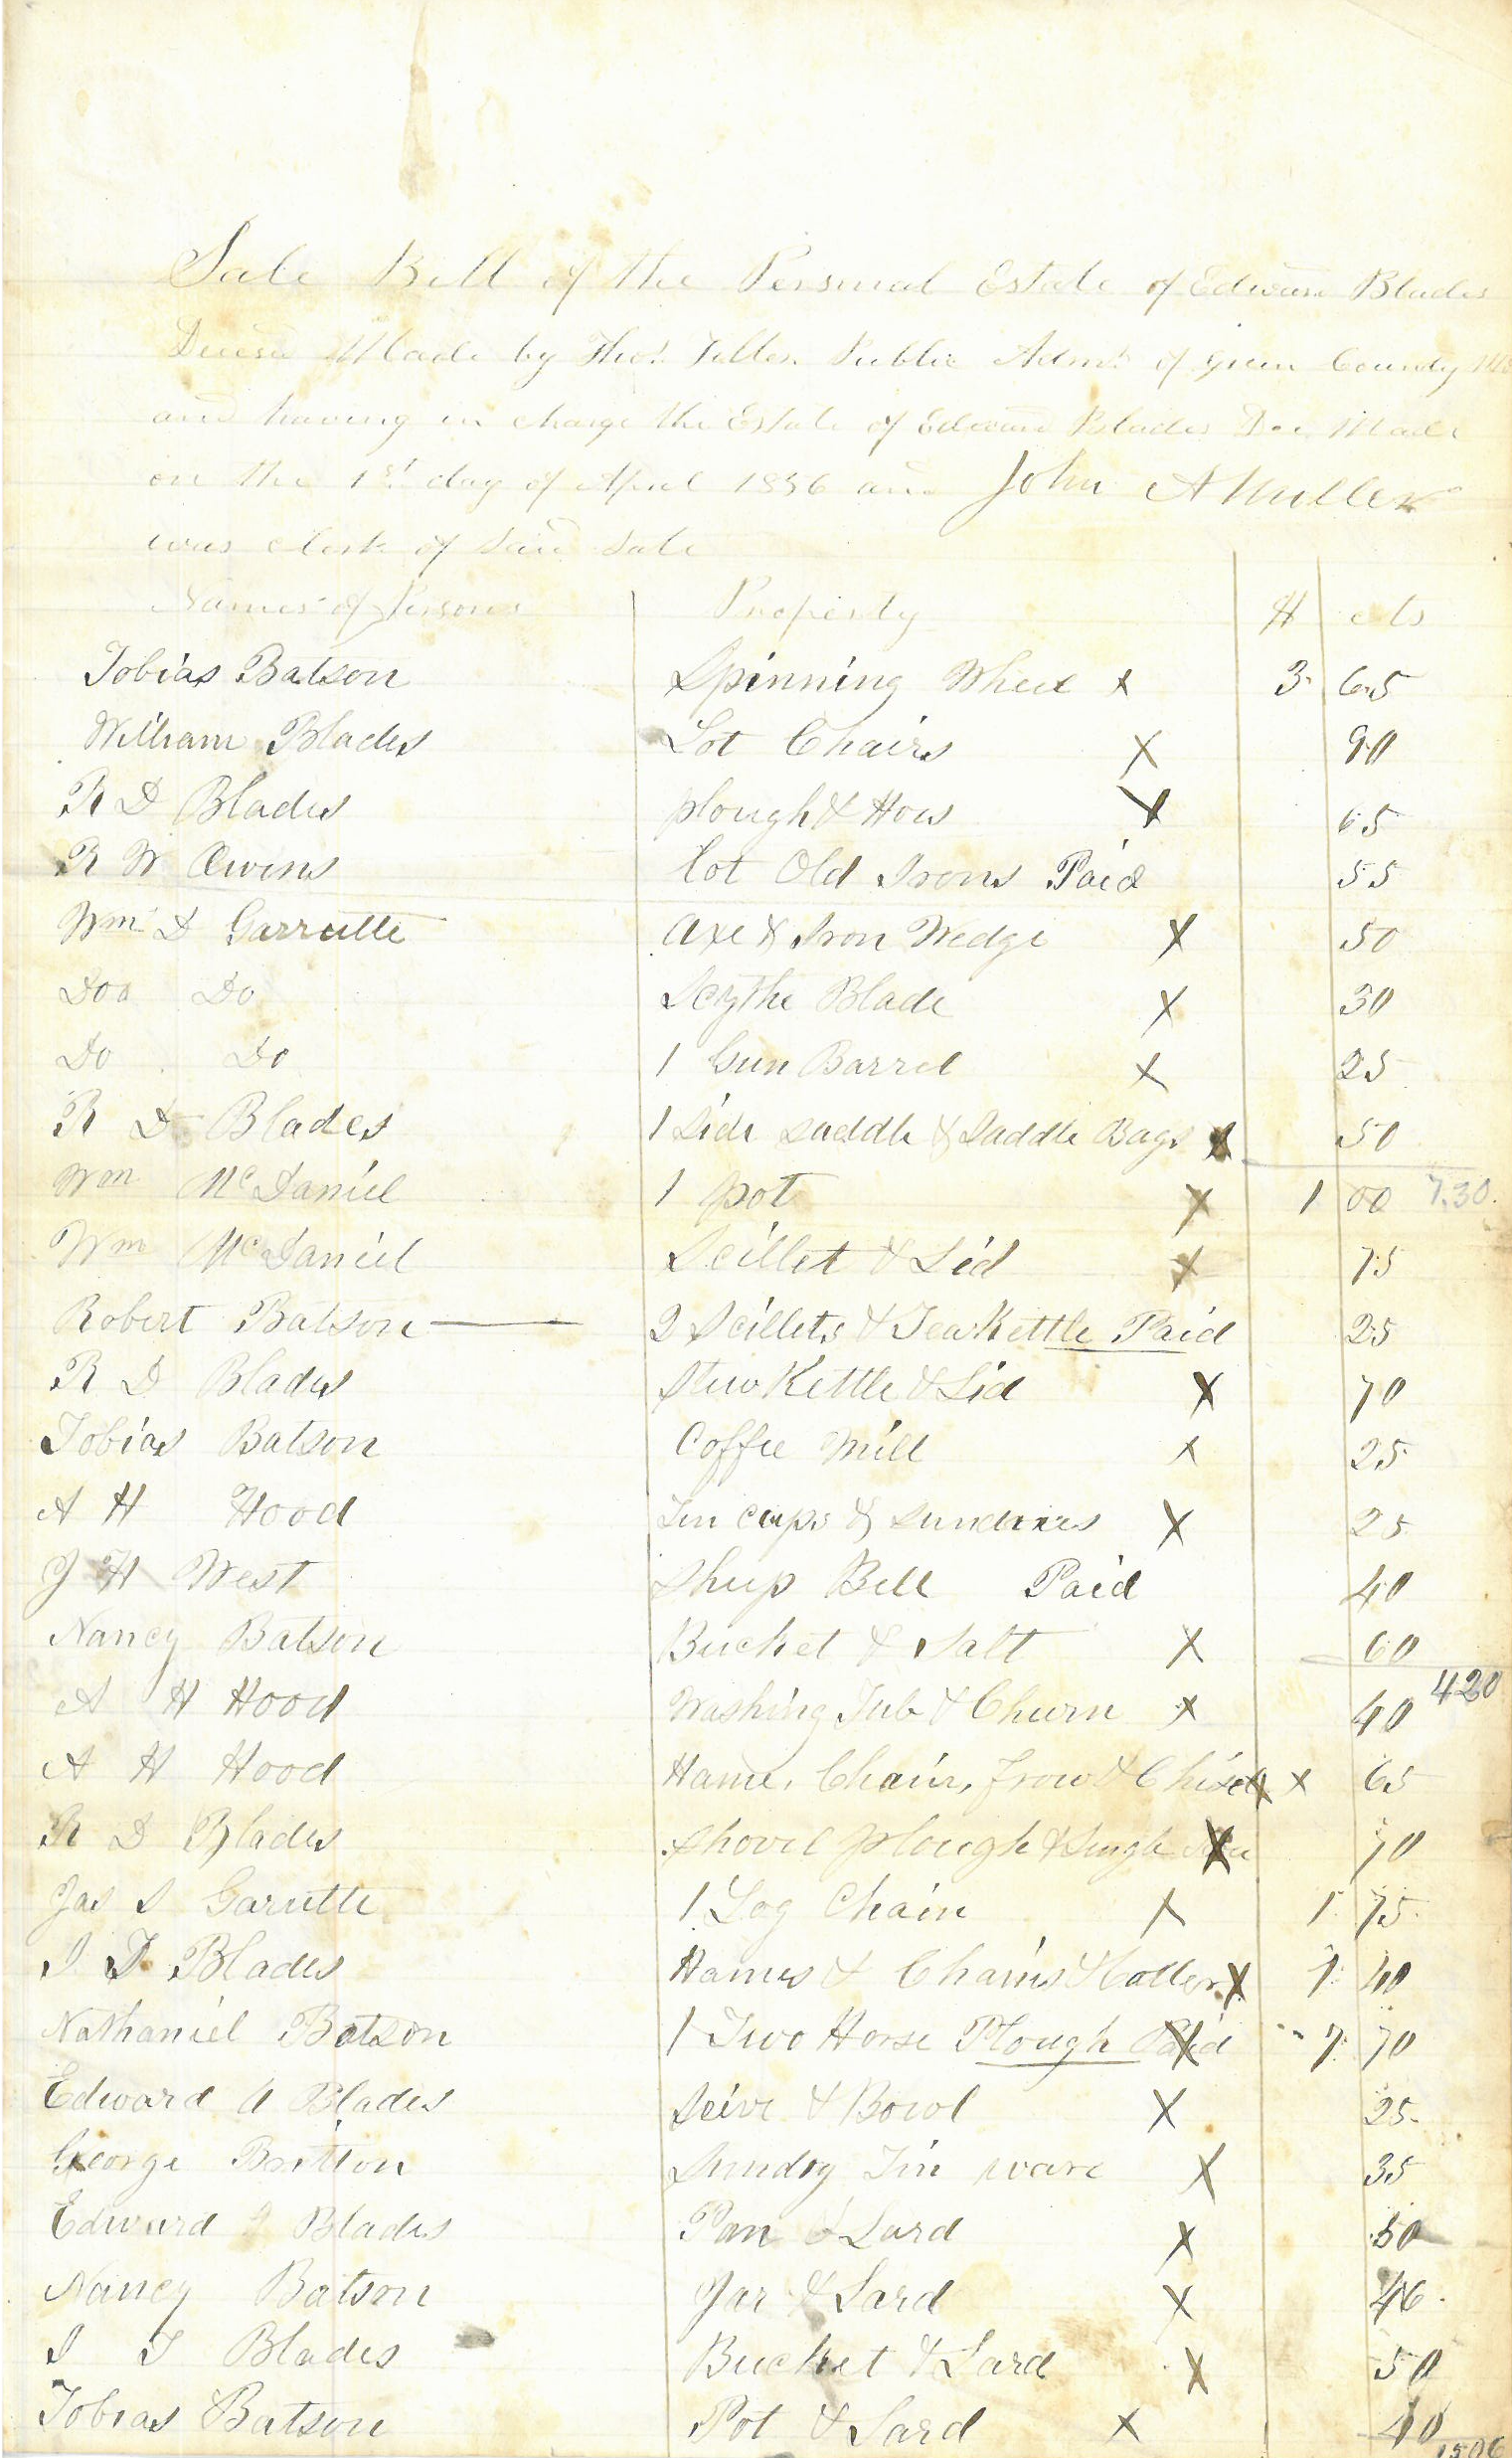 Sale Bill of the Personal Estate of Edward Blades
Decsd Made by Thos. Tiller Public Admr. of Green County Mo
and having in charge the Estate of Edward Blades Dec. Made
on the 1st day of April 1856 and John A Miller
was clerk of said Sale
Names of Persons Property $ cts
Tobias Batson Spinning Wheel x 3 65
William Blades Lot Chairs X 90
R D Blades plough & Hoes X 65
R W Owens Lot Old Irons Paid 55
Wm D Garrutte Axe & Iron Wedge X 50
Doo Do Scythe Blade X 30
Do Do 1 Gun Barrel X 25
R D Blades 1 Side Saddle & Saddle Bags X 50
Wm McDaniel 1 pot X 1 00 7.30
Wm McDaniel Scillet & Lid X 75
Robert Batson 2 Scillets & Tea Kettle Paid 25
R D Blades Stew Kettle & Lid X 70
Tobias Batson Coffee Mill x 25
A H Hood Tin cups & Sundries X 25
J H West Sheep Bell Paid 40
Nancy Batson Bucket & Salt X 60
A H Hood Washing Tub & Churn x 40 420
A H Hood Hame, Chain, frow & Chisel x x 65
R D Blades Shovel plough & Single X 70
Jas S Garutte 1 Log Chain X 1 75
I T Blades Hames & Chains & Coller X 1 40
Nathaniel Batson 1 Two Horse Plough Paid X 7 70
Edward A Blades Seive & Bowl X 25
George Britton Sundry Tin ware X 35
Edward Blades Pan & Lard X 50
Nancy Batson Jar & Lard X 46
I T Blades Bucket & Lard X 50
Tobias Batson Pot & Lard X 40
1506